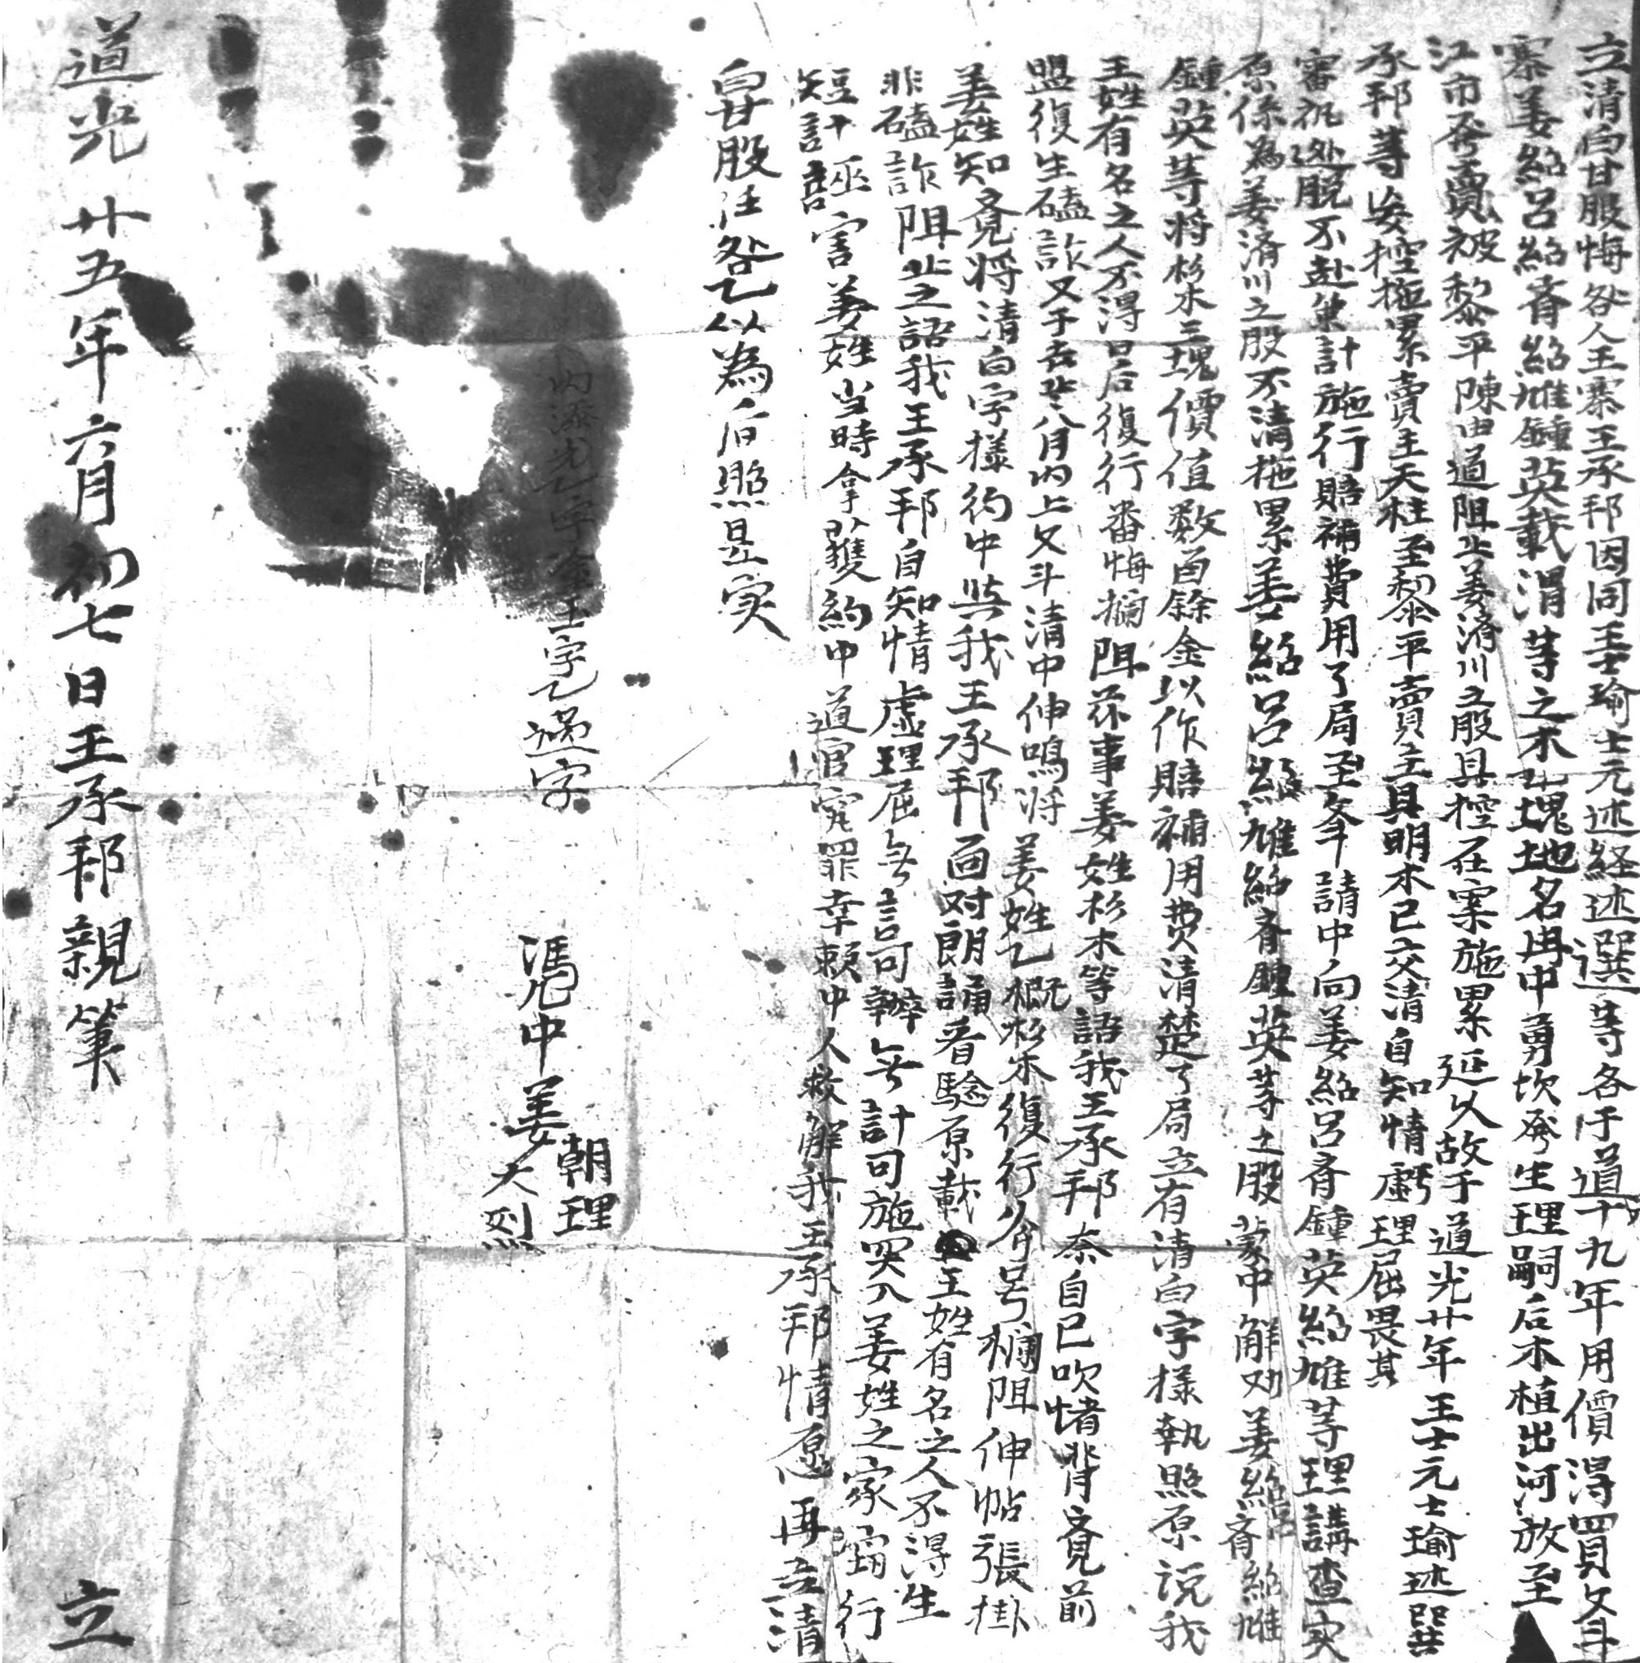 立清白甘服悔咎人王寨王承邦因同王士瑜士元述経述選等各于道十九年用價得買文斗
寨姜紹呂紹齐紹雄鍾英載渭等之木乙塊地名冉中勇坎发生理嗣后木植出河放至
江市发賣被黎平陳由道阻止姜済川之股具控在案施累延以故于道光廿年王士元士瑜述巽
承邦等妄控拖累賣主天柱至黎平賣主具明木已交清自知情虧理屈畏其
審訊逃脱不赴東計施行賠補費用了局至今年請中向姜紹呂齐鍾英紹雄等理講查实
原係為姜済川之股不清拖累姜紹呂紹雄紹齐鍾英等之股蒙中解劝姜紹齐紹雄
鍾英等将杉木三塊價值数百餘金以作賠補用費清楚了局立有清白字樣執照原説我
王姓有名之人不得日后復行番悔攔阻茲事姜姓杉木等語我王承邦奈自已吹堵背覔前
盟復生磕詐又于去年八月内上文斗清中伸鳴将姜姓乙概杉木復行斧号攔阻伸帖張掛
姜姓知覔将清白字樣約中與我王承邦面对朗誦看驗原載王姓有名之人不得生
非磕詐阻止之語我王承邦自知情虚理屈無言可辦無計可施哭入姜姓之家霸行
短計誣害姜姓当時拿獲約中道官究罪幸賴中人救解我王承邦情愿再立清
白甘服注咎乙似為后照是实
内添光乙字塗王字乙過字
馮兄中姜朝理
大烈
道光廿五年六月初七日王承邦親筆立